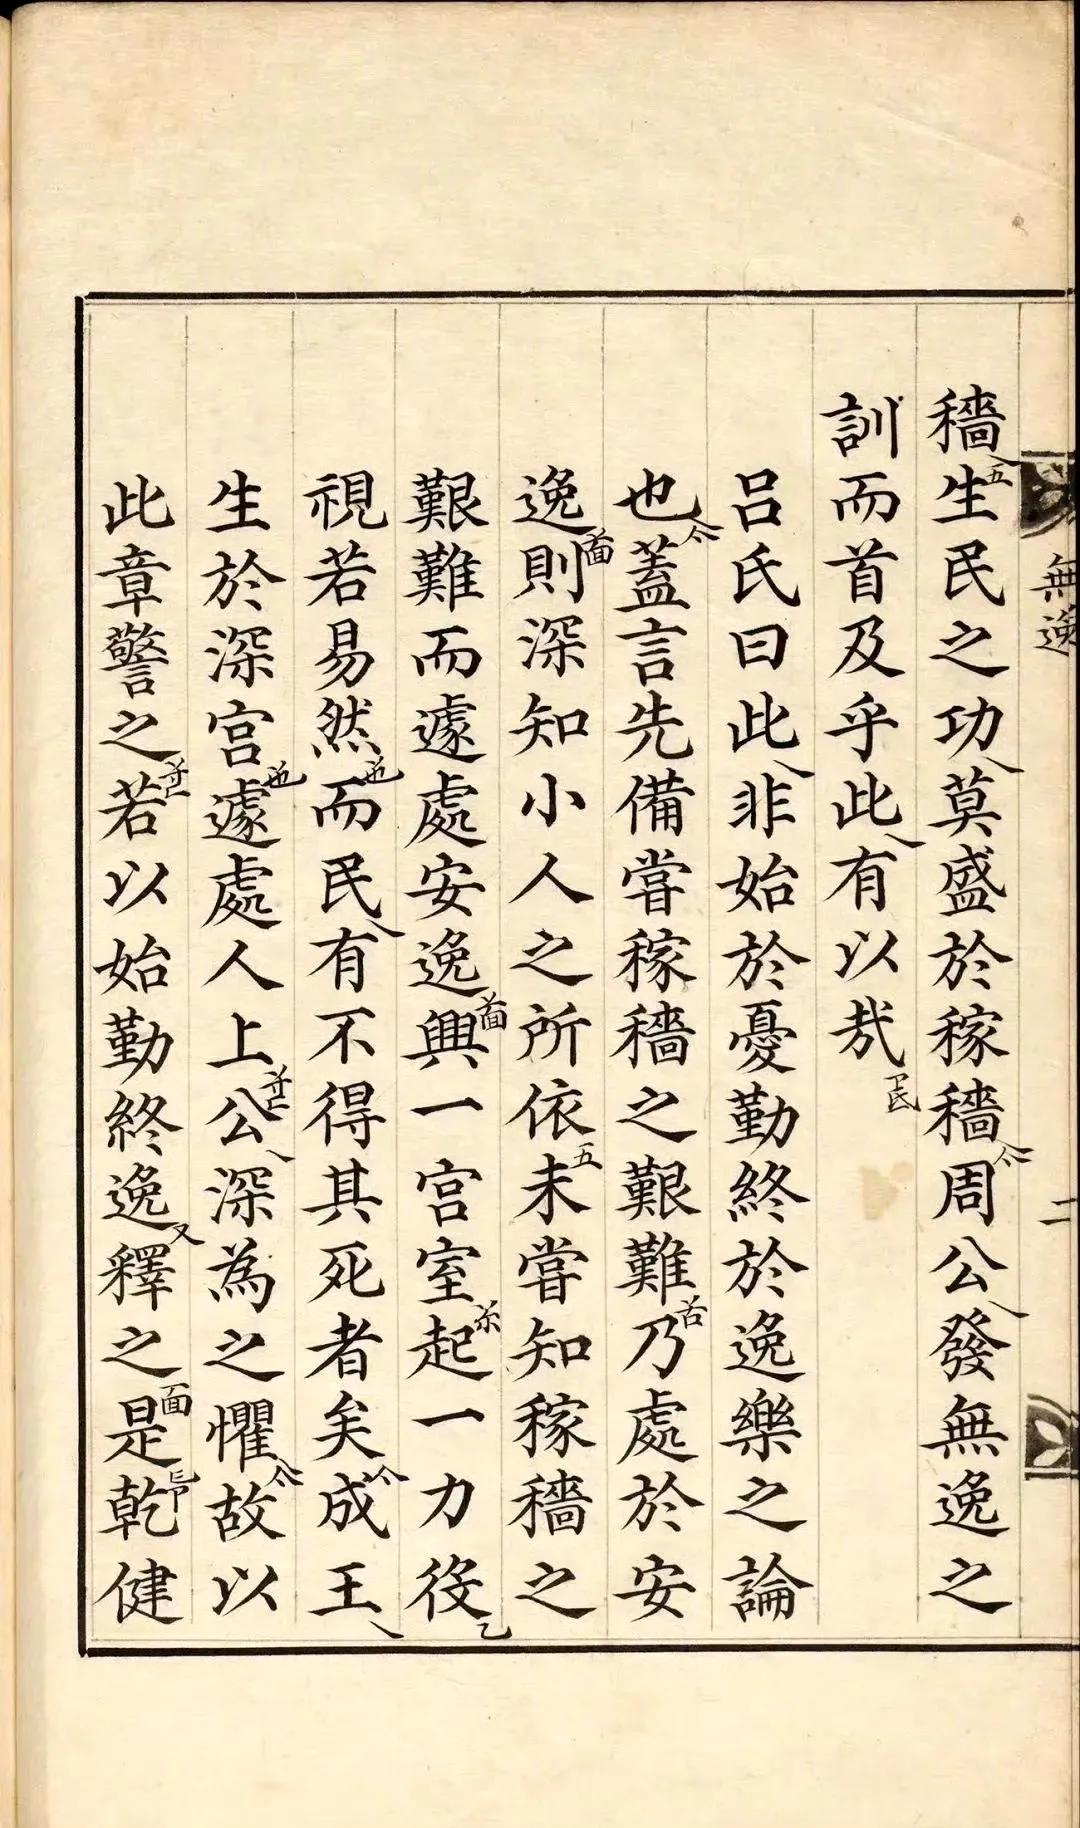 無逸
二
穡生民之功莫盛於稼穡周公發無逸之
訓而首及乎此有以哉
呂氏曰此非始於憂勤終於逸樂之論
也蓋言先備嘗稼穡之艱難乃處於安
逸則深知小人之所依未嘗知稼穡之
艱難而遽處安逸興一宮室起一力役
視若易然而民有不得其死者矣成王
生於深宮遽處人上公深為之懼故以
此章警之若以始勤終逸釋之是乾健